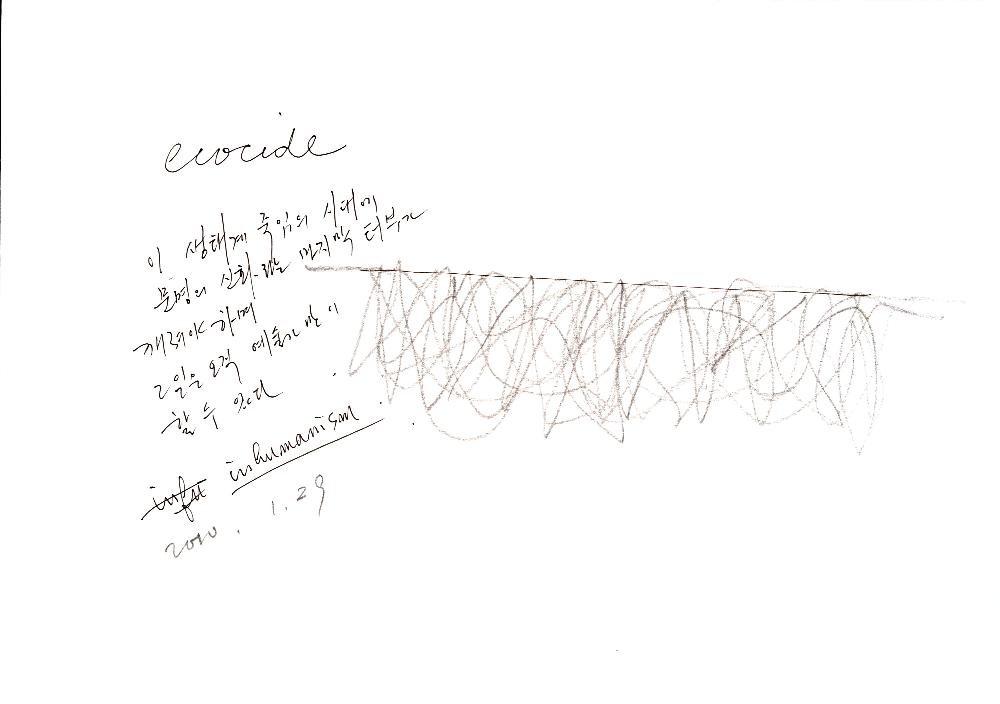 ecocide
이 생태계 죽임의 시대에
문명의 신화라는 마지막 터부가
깨려야 하며
그 일은 오직 예술가만이
할 수 있다
inhumanism
2010. 1. 29